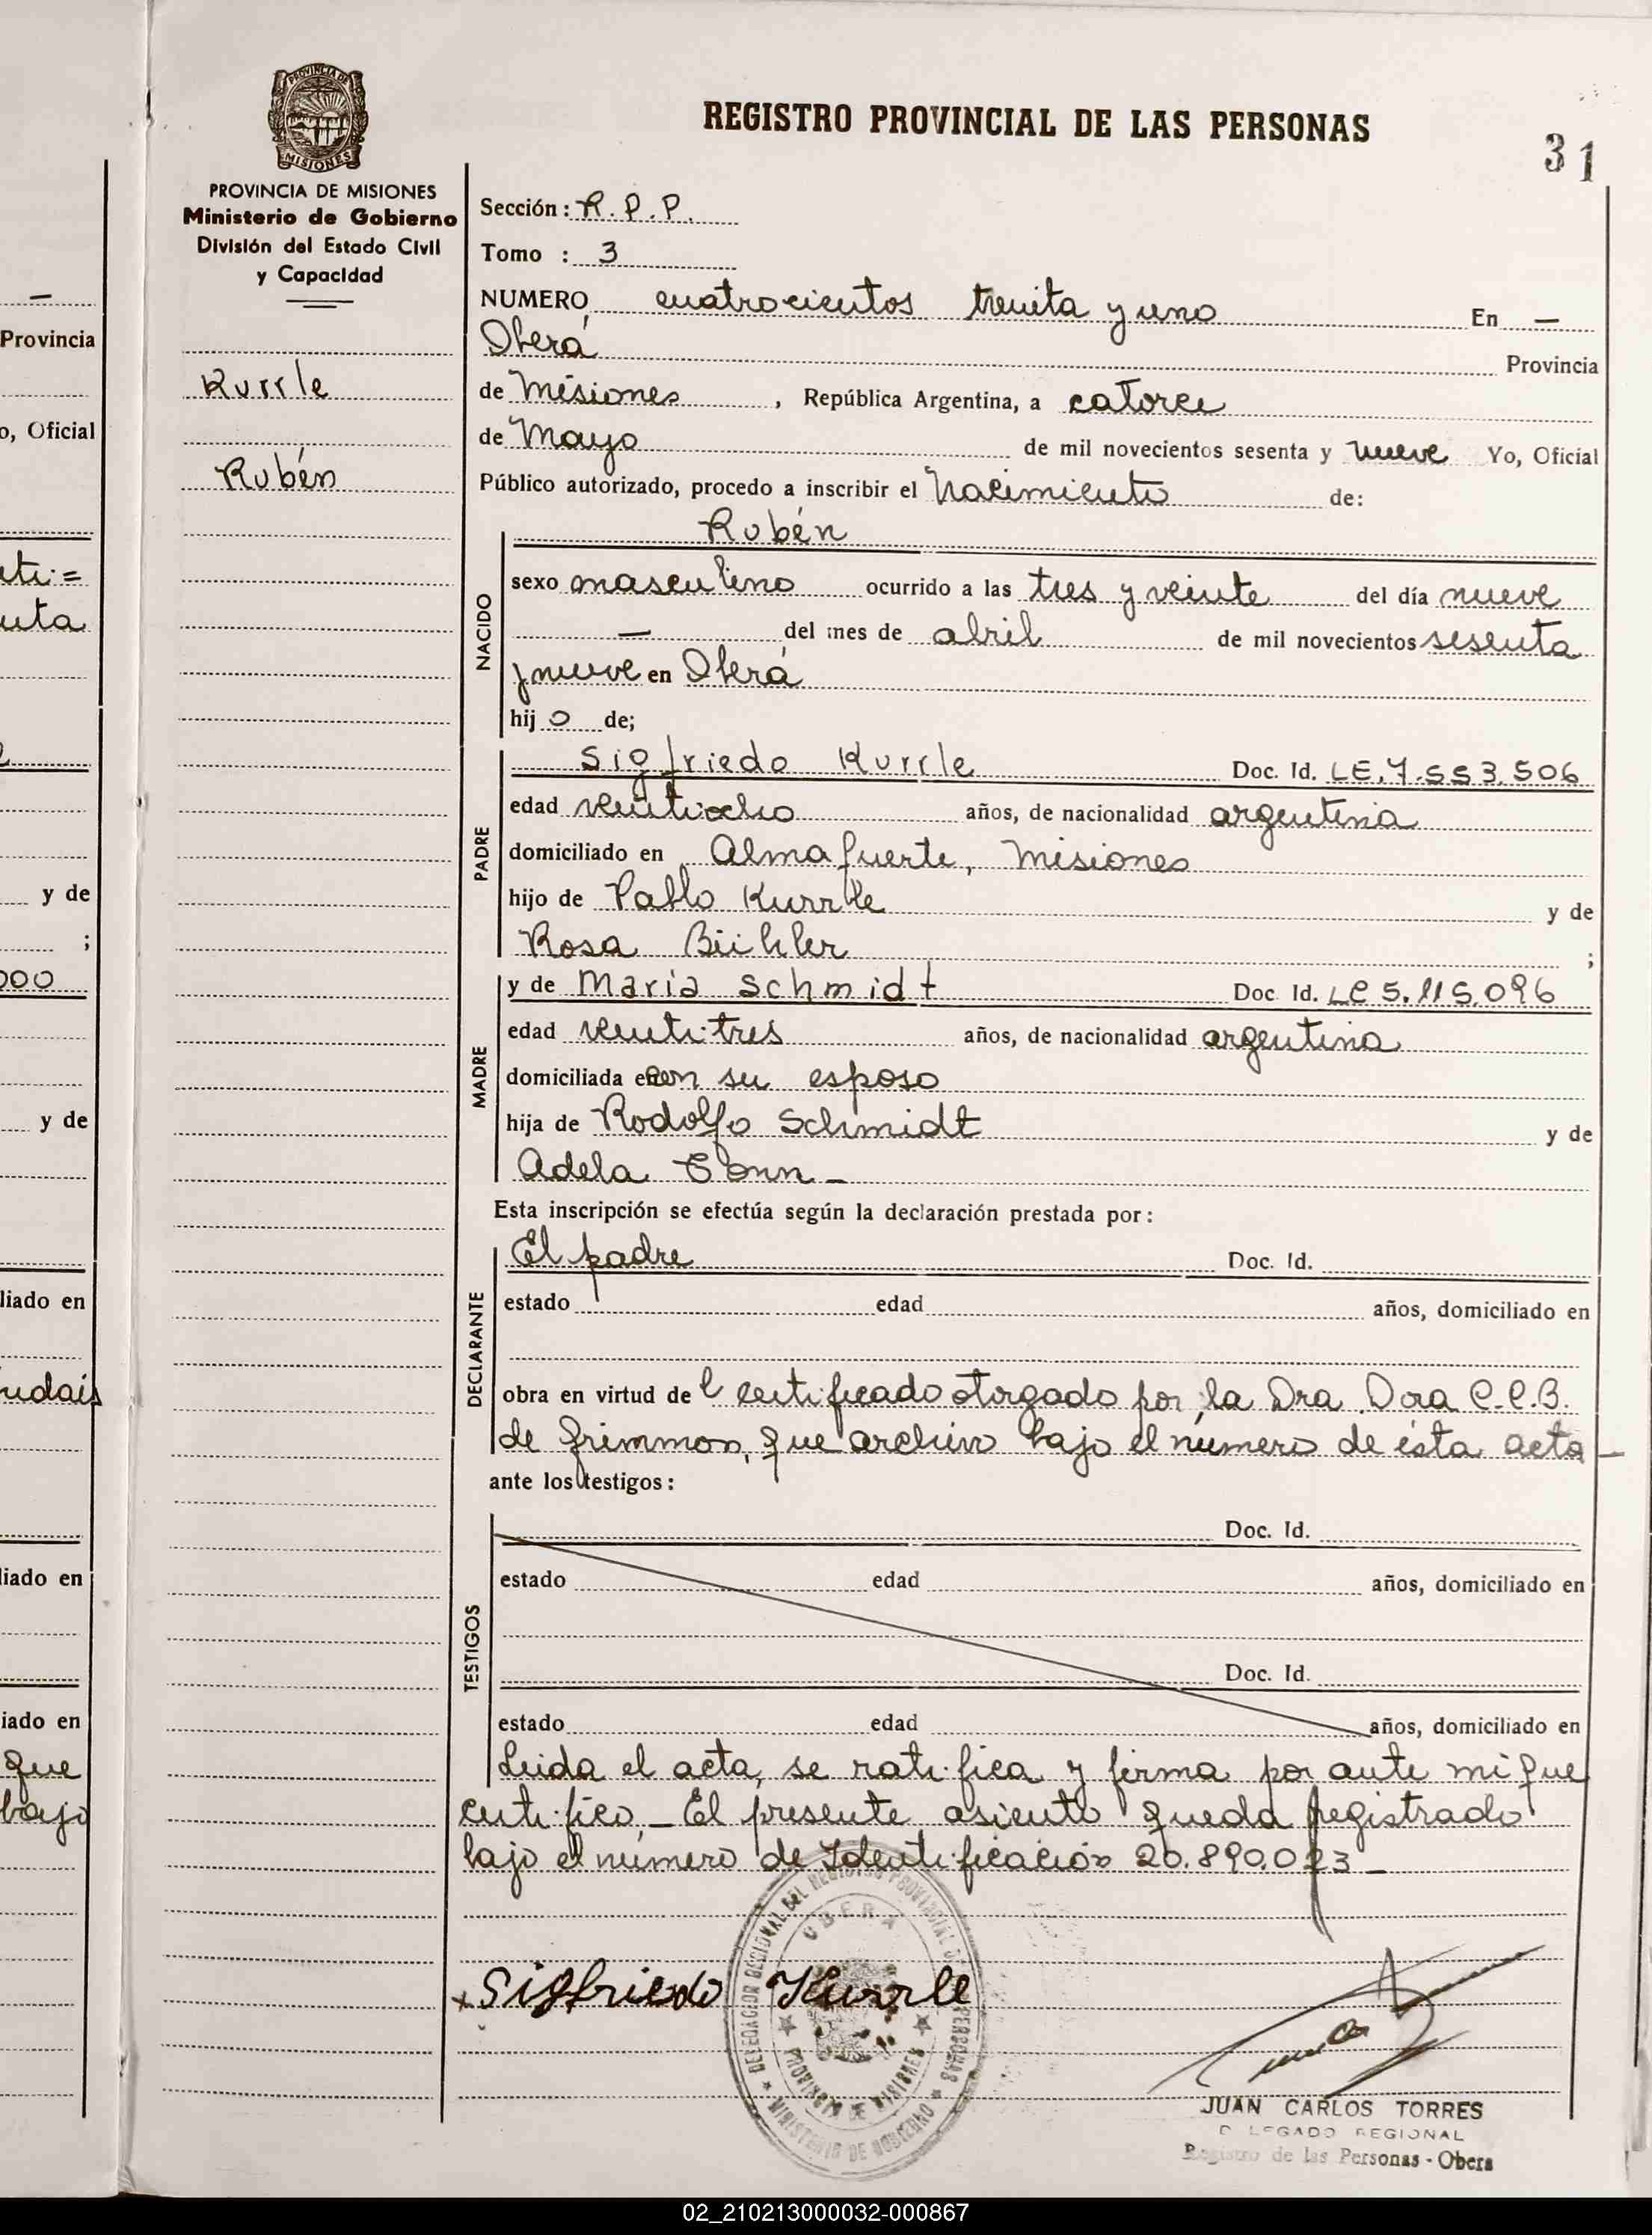 REGISTRO PROVINCIAL DE LAS PERSONAS
31
PROVINCIA DE
MISIONES
PROVINCIA DE MISIONES
Ministerio de Gobierno
División del Estado Civil
y Capacidad
Kurrle
Rubén
Sección: R.P.P.
Tomo : 3
NUMERO cuatrocientos treinta y uno En —
Oberá Provincia
de Misiones, República Argentina, a catorce
de Mayo de mil novecientos sesenta y nueve Yo, Oficial
Público autorizado, procedo a inscribir el Nacimiento de:
NACIDO
Rubén
sexo masculino ocurrido a las tres y veinte del día nueve
— del mes de abril de mil novecientos sesenta
y nueve en Oberá
hijo de;
PADRE
Sigfriedo Kurrle Doc. Id. LE.7.553.506
edad veintiocho años, de nacionalidad argentina
domiciliado en Almafuerte, Misiones
hijo de Pablo Kurrle y de
Rosa Bühler ;
MADRE
y de Maria Schmidt Doc. Id. LC 5.115.096
edad veintitres años, de nacionalidad argentina
domiciliada en con su esposo
hija de Rodolfo Schmidt y de
Adela
Esta inscripción se efectúa según la declaración prestada por:
DECLARANTE
El padre Doc. Id.
estado edad años, domiciliado en
obra en virtud del certificado otorgado por la Dra Dora C.C.B.
de Grimmon, que archivo bajo el número de ésta acta —
ante los testigos:
TESTIGOS
Doc. Id.
estado edad años, domiciliado en
Doc. Id.
estado edad años, domiciliado en
Leida el acta, se ratifica y firma por ante mi que
certifico.— El presente asiento queda registrado
bajo el número de Identificación 20.890.023 —
Sigfriedo Kurrle
OBERA
PROVINCIA DE MISIONES
MINISTERIO DE GOBIERNO
JUAN CARLOS TORRES
DELEGADO REGIONAL
Registro de las Personas - Obera
Provincia
o, Oficial
y de
;
000
y de
liado en
liado en
iado en
que
bajo
02_210213000032-000867